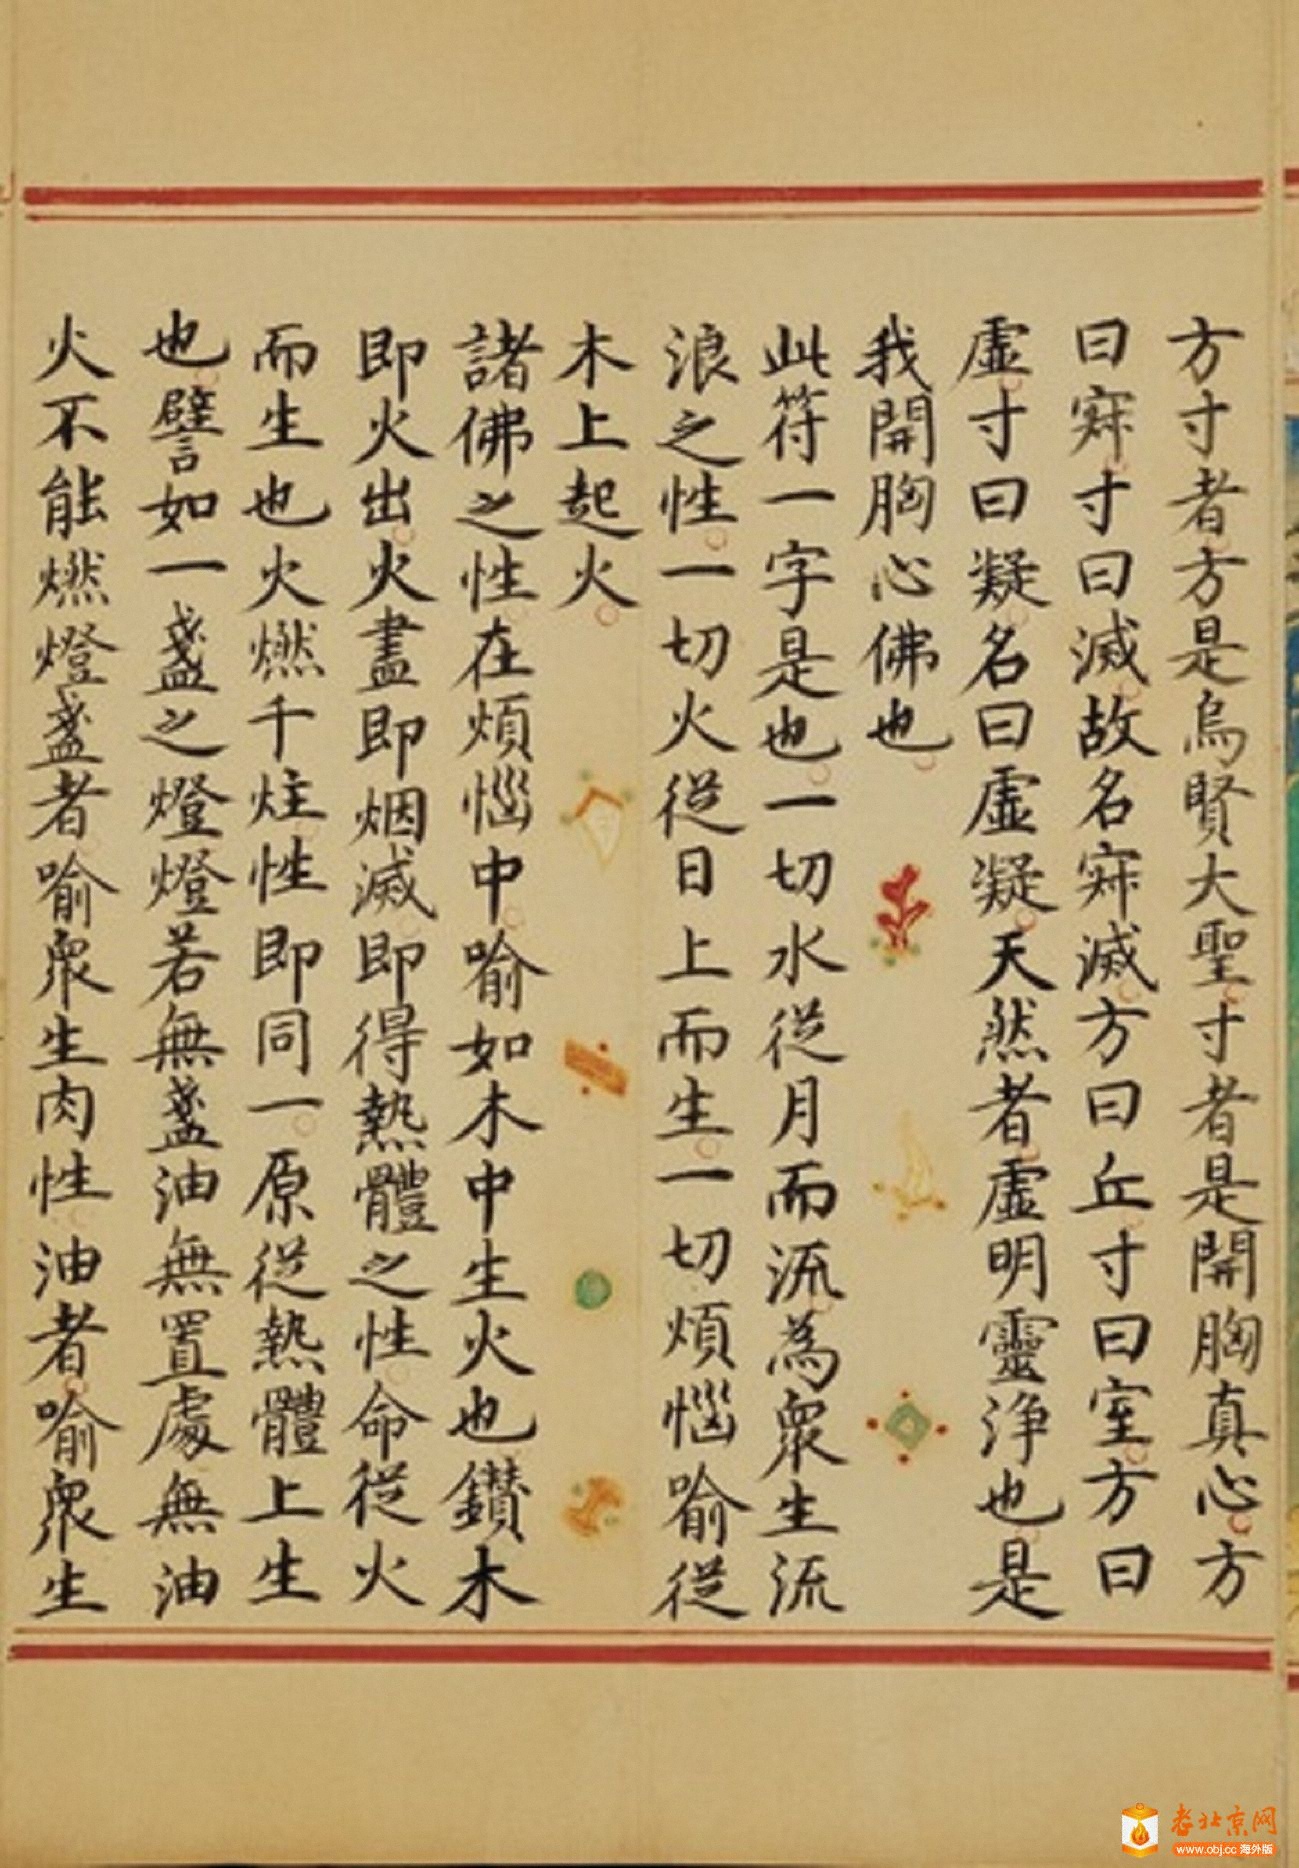 方寸者方是烏賢大聖寸者是開胸真心方
曰寂寸曰滅故名寂滅方曰丘寸曰室方曰
虛寸曰凝名曰虛凝天然者虛明靈淨也是
我開胸心佛也
此符一字是也一切水從月而流為眾生流
浪之性一切火從日上而生一切煩惱喻從
木上起火
諸佛之性在煩惱中喻如木中生火也鑚木
即火出火盡即烟滅即得熱體之性命從火
而生也火燃千炷性即同一原從熱體上生
也譬如一盞之燈燈若無盞油無置處無油
火不能燃燈盞者喻眾生肉性油者喻眾生
老北京网
www.obj.cc 海外版